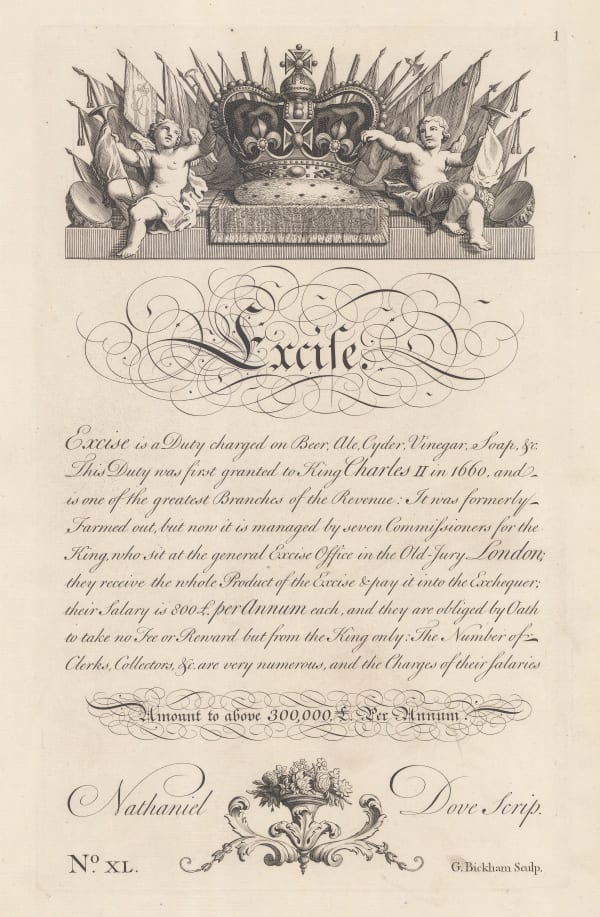 1
Exciſe.
Excise is a Duty charged on Beer, Ale, Cyder, Vinegar, Soap, &c.
This Duty was first granted to King Charles II in 1660, and
is one of the greatest Branches of the Revenue: It was formerly
Farmed out, but now it is managed by seven Commiſsioners for the
King, who sit at the general Excise Office in the Old-Jury, London;
they receive the whole Product of the Excise & pay it into the Exchequer;
their Salary is 800 £. per Annum each, and they are obliged by Oath
to take no Fee or Reward but from the King only: The Number of
Clerks, Collectors, &c. are very numerous, and the Charges of their ſalaries
Amount to above 300,000, £. Per Annum.
Nathaniel Dove Scrip.
No. XL.
G. Bickham Sculp.